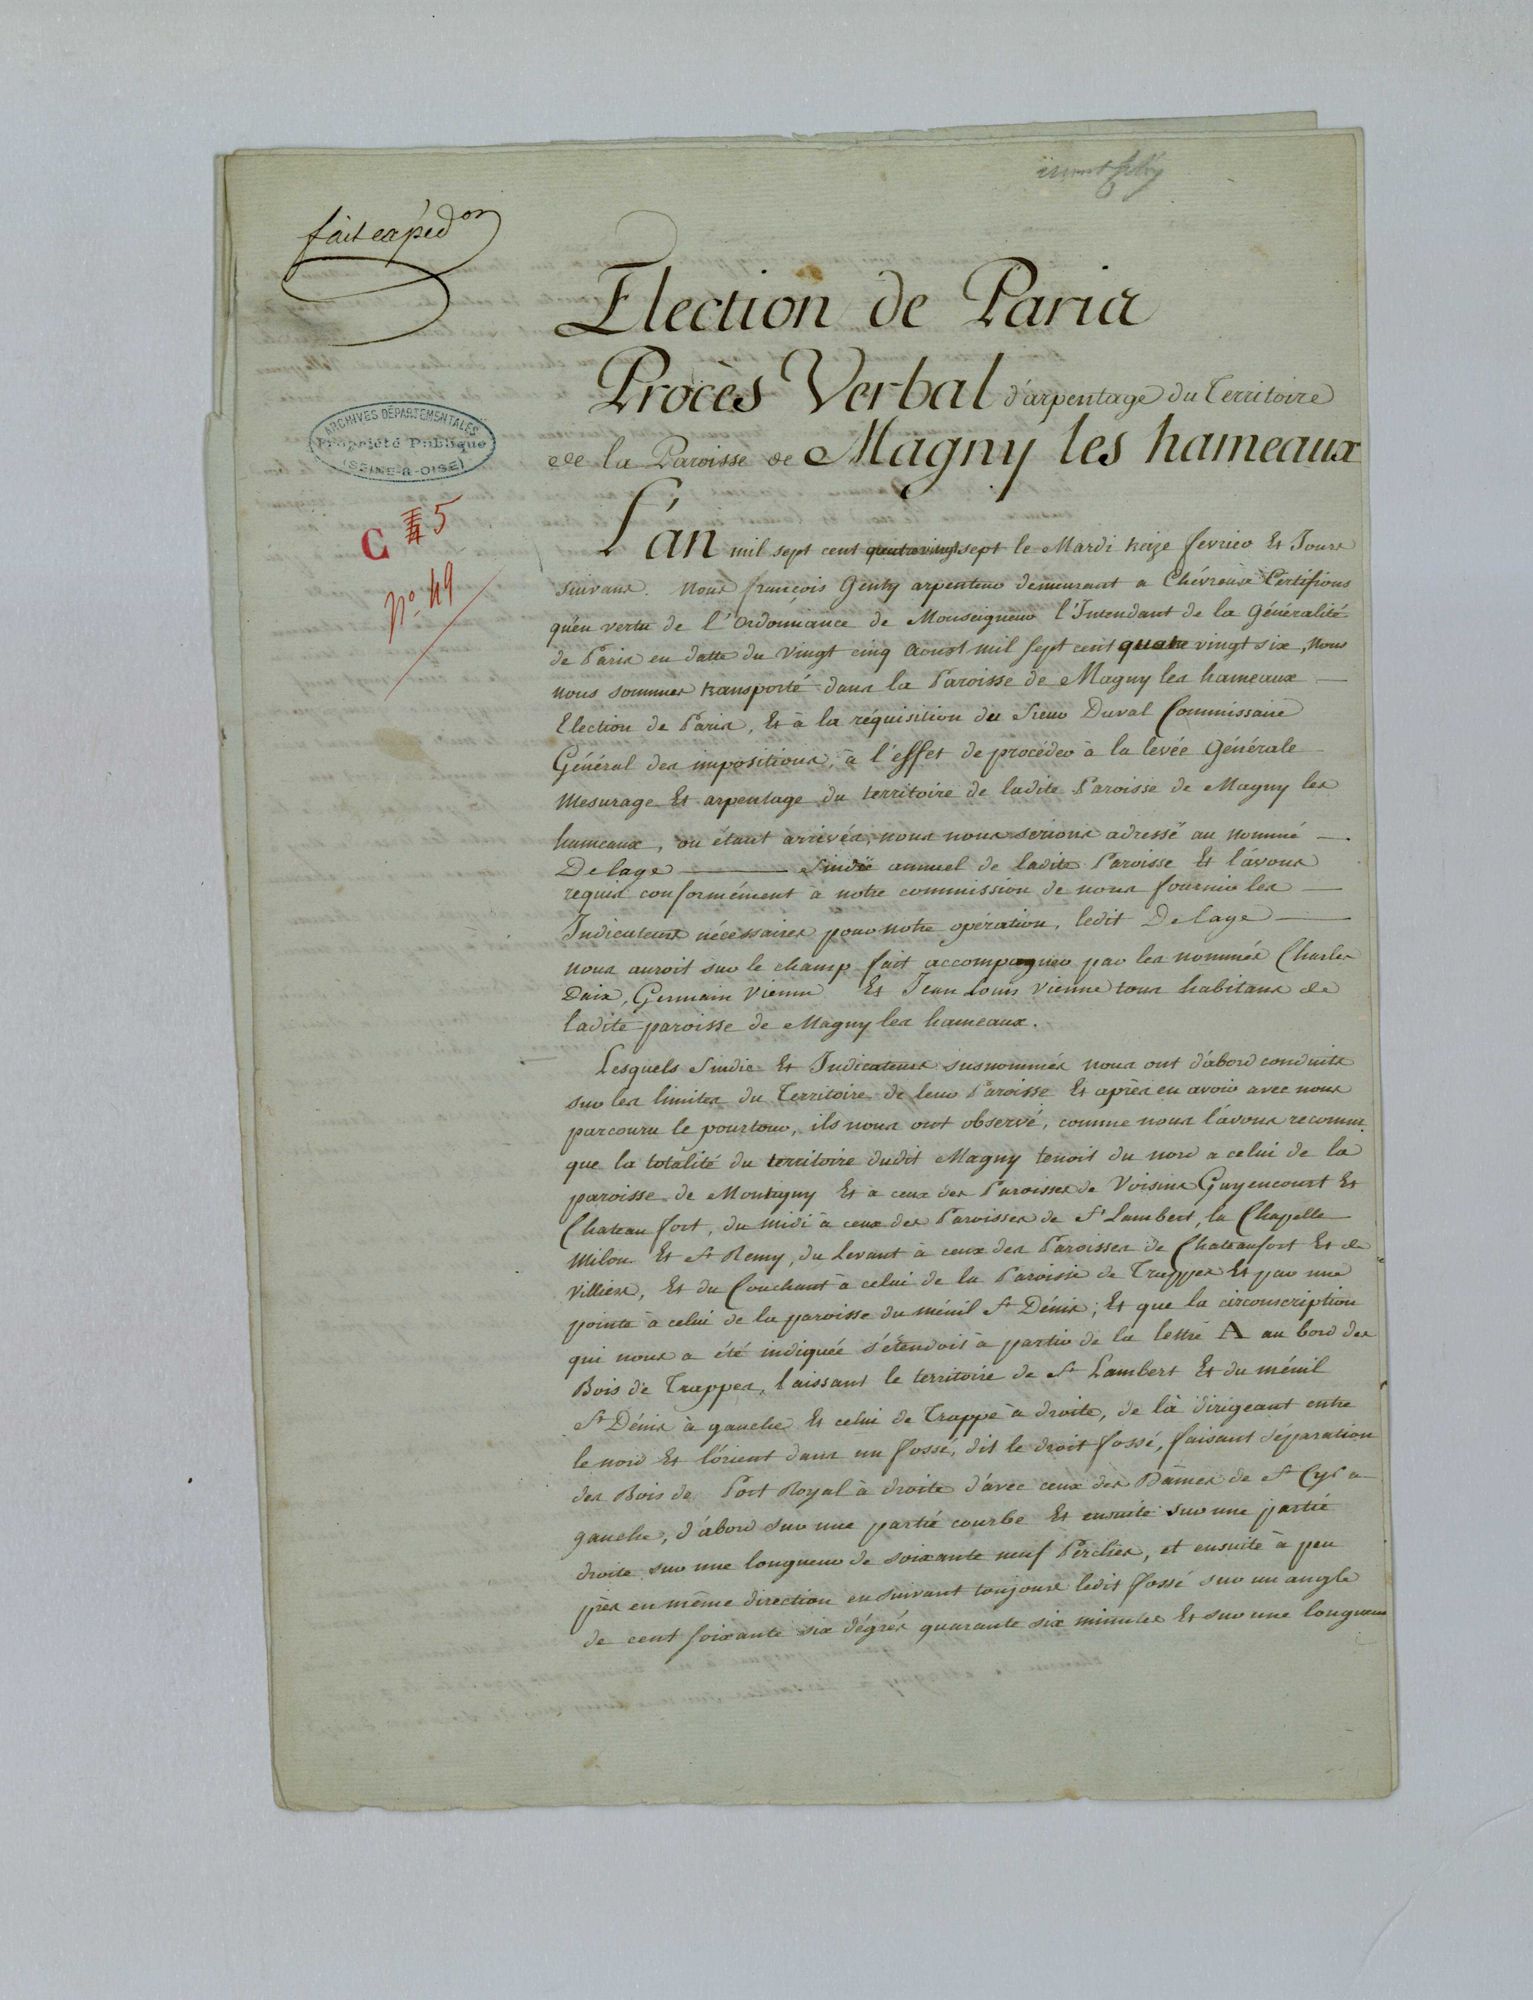 fait expéd.on
Election de Paris
Procès Verbal d'arpentage du Territoire
de la Paroisse de Magny les hameaux
ARCHIVES DÉPARTEMENTALES
Propriété Publique
(SEINE-&-OISE)
C 5
N° 49
L'an mil sept cent quatrevingt sept le Mardi treize fevrier Et Jours
suivans. Nous françois Genty arpenteur demeurant a Chévreuse Certifions
qu'en vertu de l'Ordonnance de Monseigneur l'Intendant de la Généralité
de Paris en datte du Vingt cinq Aoust mil sept cent quatre vingt six, Nous
nous sommes transporté dans la Paroisse de Magny les hameaux
Election de Paris, Et à la réquisition du Sieur Duval Commissaire
Général des impositions, à l'effet de procéder à la levée Générale
Mesurage Et arpentage du territoire de ladite Paroisse de Magny les
hameaux, ou étant arrivés, nous nous serions adressé au nommé
Delage Sindic annuel de ladite Paroisse Et l'avons
requis conformément à notre commission de nous fournir les
Indicateurs nécessaires pour notre opération, ledit Delage
nous auroit sur le champ fait accompagner par les nommés Charles
Daix, Germain Vienne Et Jean Louis Vienne tous habitans de
ladite paroisse de Magny les hameaux.
Lesquels Sindic Et Indicateurs susnommés nous ont d'abord conduits
sur les limites du Territoire de leur Paroisse Et après en avoir avec nous
parcouru le pourtour, ils nous ont observé, comme nous l'avons reconnu
que la totalité du territoire dudit Magny tenoit du nord a celui de la
paroisse de Montigny Et a ceux des Paroisses de Voisins Guyencourt Et
Chateau fort, du Midi à ceux des Paroisses de St Lambert, la Chapelle
Milon Et St Remy, du Levant à ceux des Paroisses de Chateaufort Et de
Villiers, Et du Couchant à celui de la Paroisse de Trappes Et par une
pointe à celui de la paroisse du ménil St Dénis; Et que la circonscription
qui nous a été indiquée s'étendoit à partir de la lettre A au bord des
Bois de Trappes, laissant le territoire de St Lambert Et du ménil
St Dénis à gauche Et celui de Trappe à droite, de là dirigeant entre
le nord Et l'orient dans un fossé, dit le droit fossé, faisant séparation
des Bois de Port Royal à droite d'avec ceux des Dâmes de St Cyr a
gauche, d'abord sur une partie courbe Et ensuite sur une partie
droite sur une longueur de soixante neuf Perches, et ensuite à peu
près en même direction en suivant toujours ledit fossé sur un angle
de cent soixante six dégrés quarante six minutes Et sur une longueur